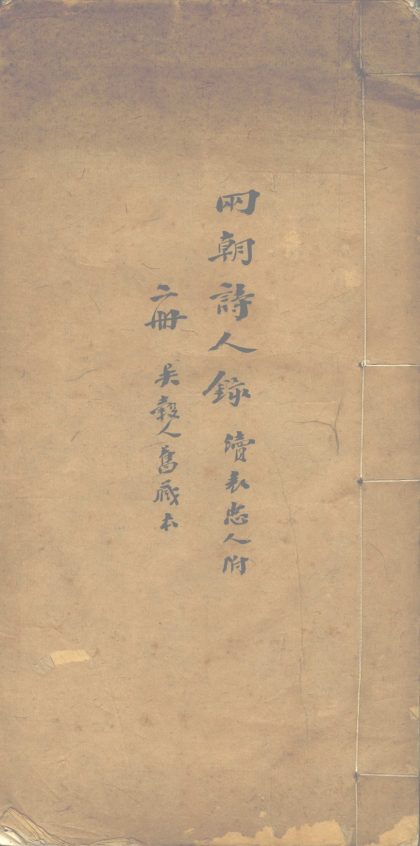 兩朝詩人錄 續表忠人附
二冊 吳穀人舊藏本